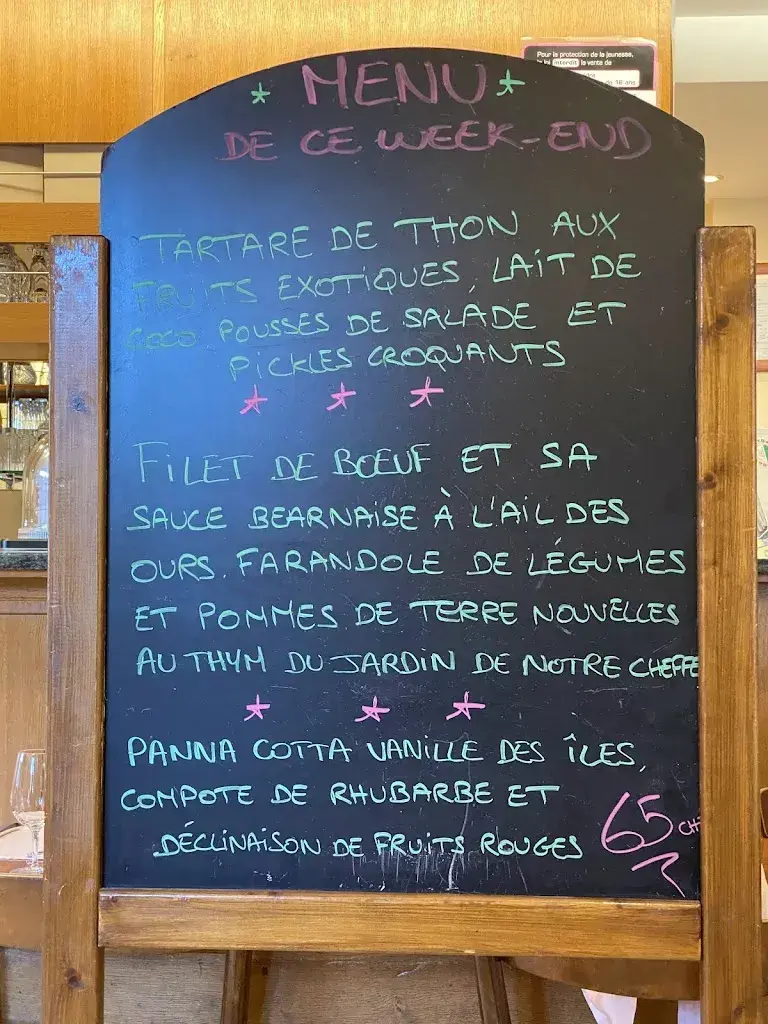 Pour la protection de la jeunesse,
la loi interdit la vente de
de 18 ans
MENU
DE CE WEEK-END
TARTARE DE THON AUX
FRUITS EXOTIQUES, LAIT DE
COCO POUSSES DE SALADE ET
PICKLES CROQUANTS
FILET DE BŒUF ET SA
SAUCE BEARNAISE À L'AIL DES
OURS. FARANDOLE DE LÉGUMES
ET POMMES DE TERRE NOUVELLES
AU THYM DU JARDIN DE NOTRE CHEFFE
PANNA COTTA VANILLE DES ÎLES,
COMPOTE DE RHUBARBE ET
DÉCLINAISON DE FRUITS ROUGES
65 CH